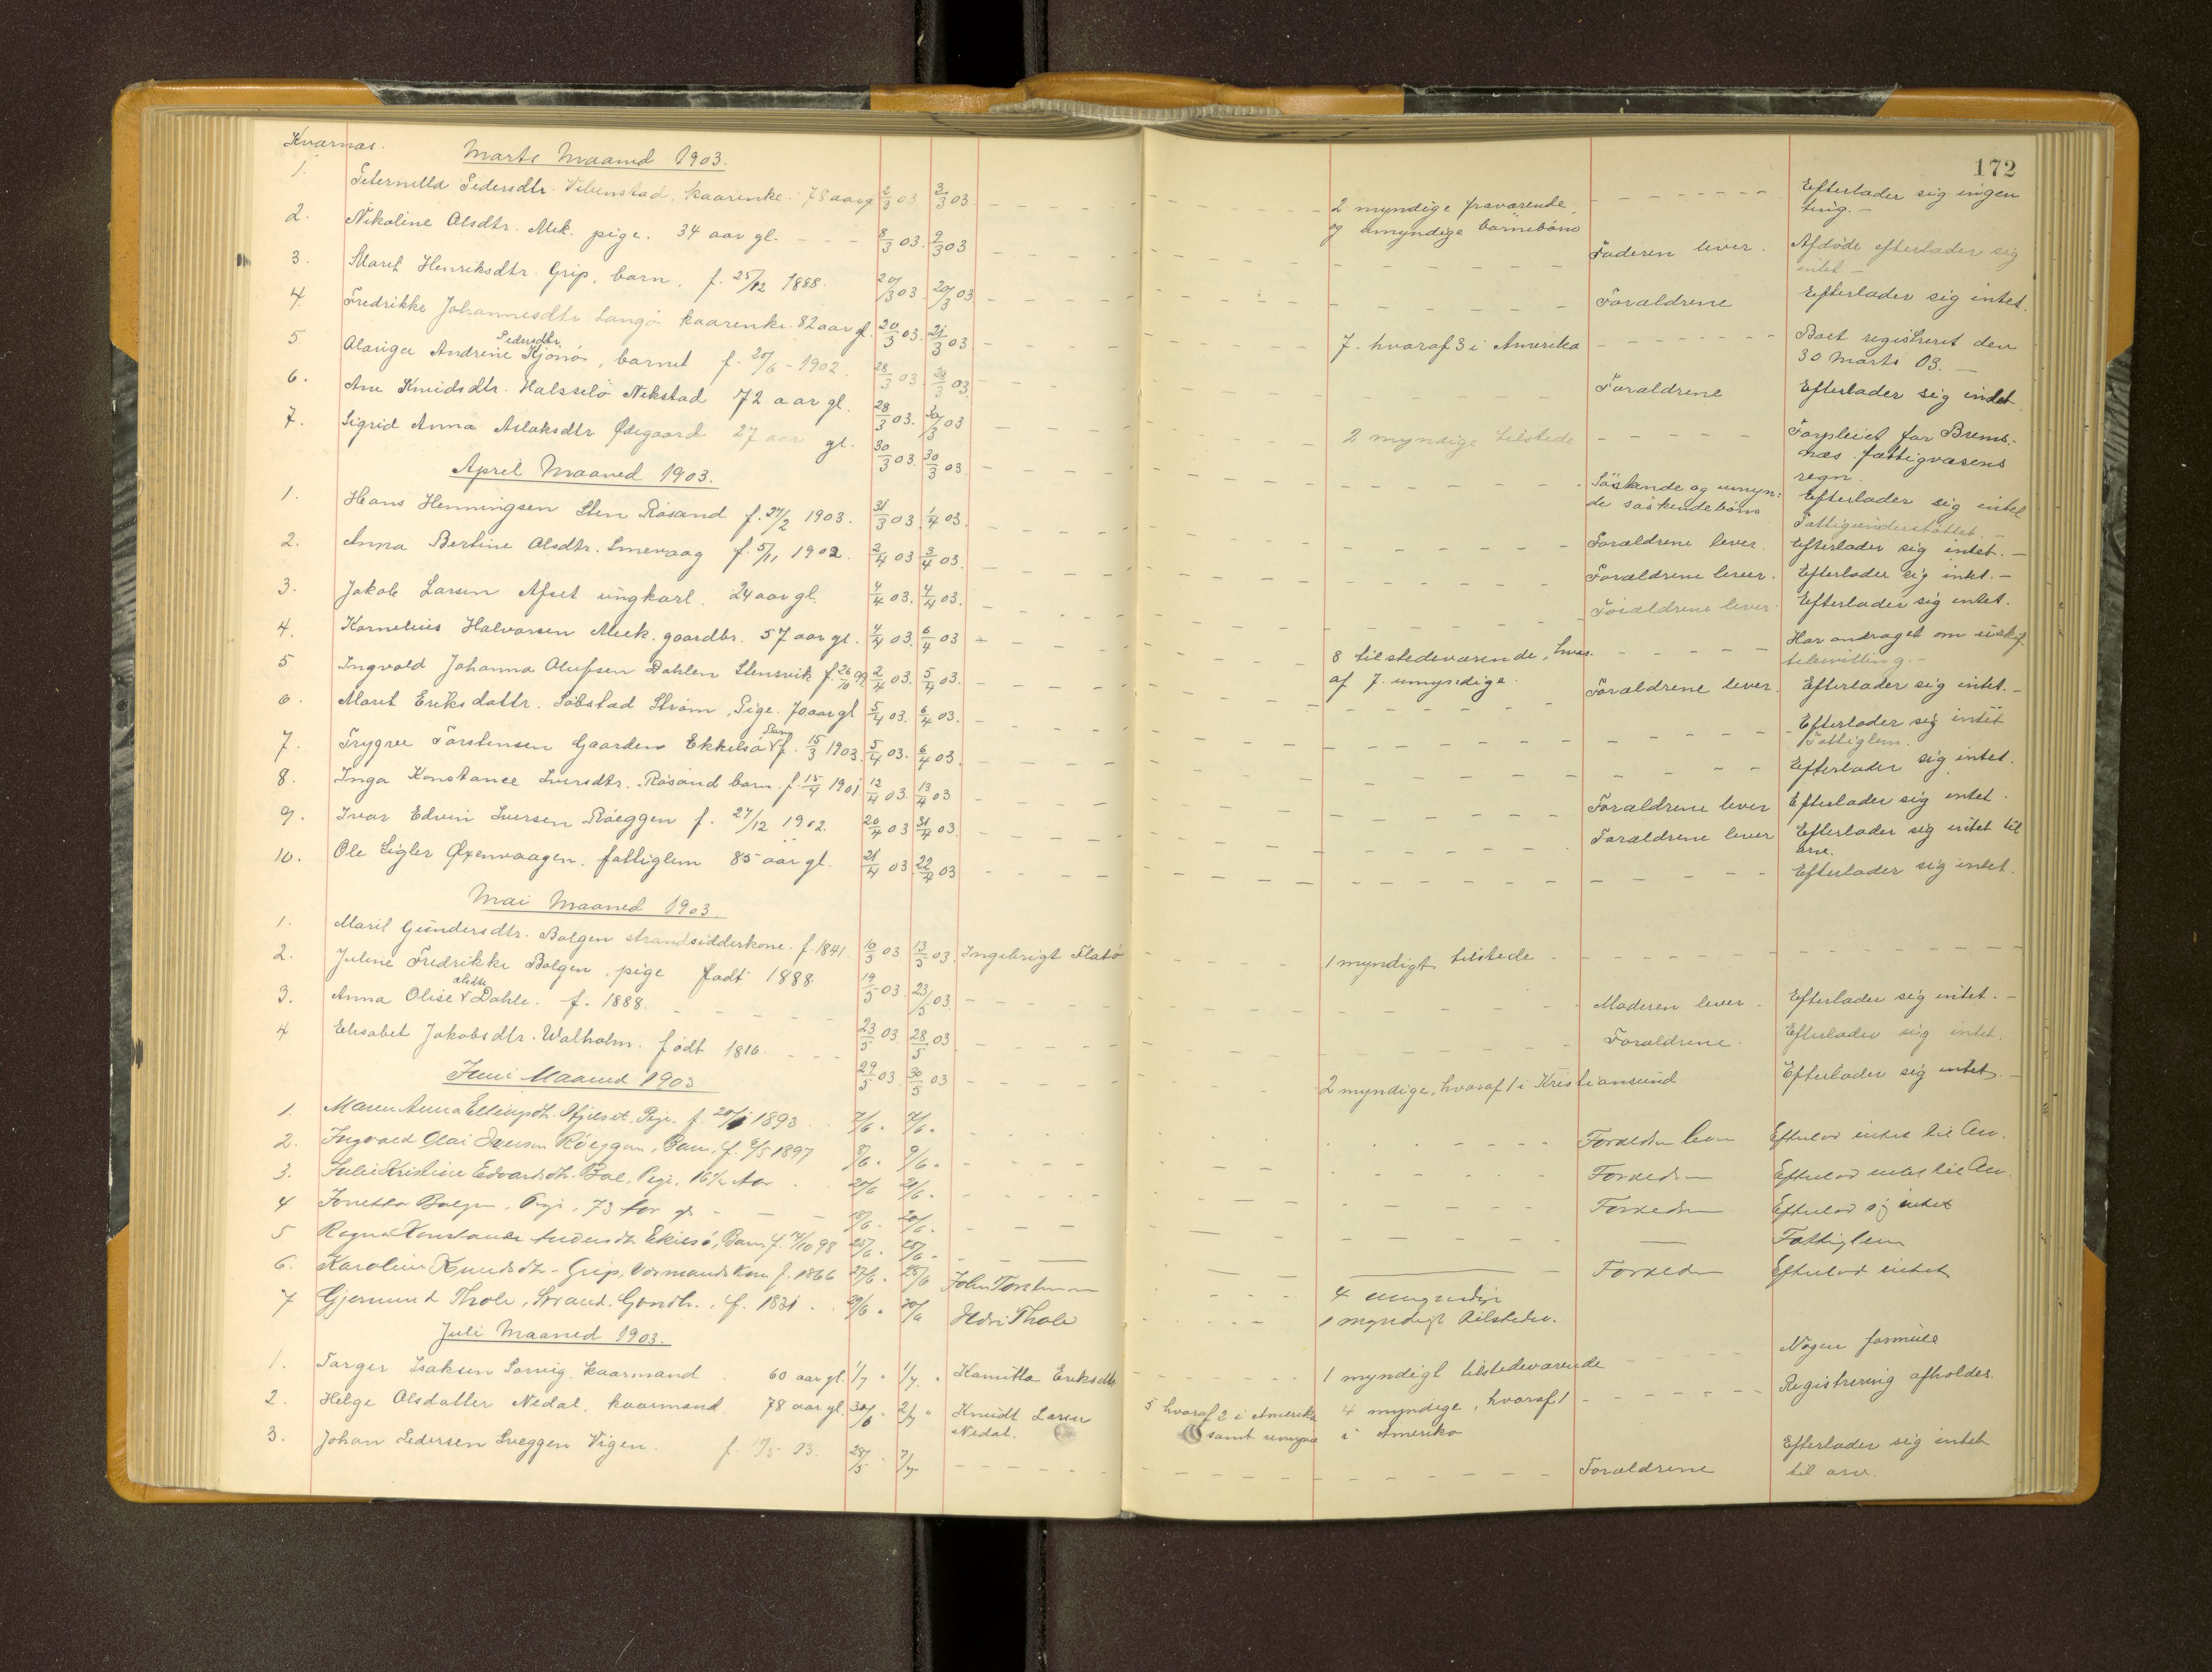 Kvarnæs.
172
Marts Maaned 1903.
1. Peternella Pedersdtr. Vebenstad, kaarenke. 78 aar gl 2/3 03. 3/3 03. 2 myndige fraværende, og umyndige barnebørn Efterlader sig ingen ting.
2. Nikoline Olsdtr. Mek. pige. 34 aar gl. 8/3 03. 9/3 03 Faderen lever. Afdøde efterlader sig intet.
3. Maret Henriksdtr. Grip, barn. f. 25/12 1888. 20/3 03. 20/3 03. Forældrene Efterlader sig intet.
4. Fredrikke Johannesdtr Langø kaarenke. 82 aar gl. 20/3 03. 21/3 03. 7. hvoraf 3 i Amerika Boet registreret den 30 Marts 03.
5 Andrine Pedersdtr. Kjønø, barnet f. 20/6 - 1902. 28/3 03. 28/3 03. Forældrene Efterlader sig intet
6. Ane Knudsdtr. Halsselö Nekstad 72 aar gl. 28/3 03. 30/3 03 2 myndige tilstede Forpleiet for Brems- næs fattigvæsens regn.
7. Sigrid Anna Aslaksdtr Ødegaard 27 aar gl. 30/3 03. 30/3 03. Søskende og umyn- de søskendebørn Efterlader sig intet Fattigunderstøttet.
April Maaned 1903.
1. Hans Henningsen Sten Røsand f. 27/2 1903. 31/3 03. 1/4 03. Forældrene lever. Efterlader sig intet.
2. Anna Bertine Olsdtr. Smevaag f. 5/11 1902. 2/4 03 3/4 03. Forældrene lever. Efterlader sig intet.
3. Jakob Larsen Afset ungkarl. 24 aar gl. 4/4 03. 4/4 03. Forældrene lever Efterlader sig intet.
4. Kornelius Halvorsen Meek. gaardbr. 57 aar gl. 4/4 03. 6/4 03 8 tilstedeværende, hvor- af 7 umyndige. Har andraget om uskif. tebevilling.
5 Ingvald Johanna Olufsen Dahlen Stensvik f. 26/10 99 2/4 03. 5/4 03. Forældrene lever. Efterlader sig intet.
6. Maret Eriksdattr. Søbstad Strøm, Pige. 70 aar gl 5/4 03. 6/4 03. Efterlader sig intet Fattiglem.
7. Trygve Torstensen Gaarden Ekkilsø Barn f. 15/3 1903. 5/4 03. 6/4 03. Efterlader sig intet.
8. Inga Konstance Iversdtr. Røsand barn. f. 15/4 1901. 12/4 03. 13/4 03 Forældrene lever Efterlader sig intet.
9. Ivar Edvin Iversen Røeggen f. 27/12 1902. 20/4 03 31/4 03. Forældrene lever Efterlader sig intet til arv.
10. Ole Sigler Øxenvaagen. fattiglem 85 aar gl. 21/4 03. 22/4 03 Efterlader sig intet.
Mai Maaned 1903.
1. Maril Gundersdtr. Bolgen strandsidderkone. f. 1841 10/5 03 13/5 03. Ingebrigt Flatø 1 myndigt tilstede
2. Juline Fredrikke Bolgen, pige født 1888. 19/5 03. 23/5 03. Moderen lever. Efterlader sig intet.
3. Anna Olise Olsdtr Dahle. f. 1888. 23/5 03. 28/5 03 Forældrene. Efterlader sig intet.
4 Elisabet Jakobsdtr. Walholm. født 1816. 29/5 03. 30/5 03 2 myndige, hvoraf 1 i Kristiansund Efterlader sig intet.
Juni Maaned 1903
1. Maren Anna Ellingsdtr. Pige. f. 1893 7/6. 7/6. Efterlod intet til Arv.
2. Ingvald Olai Iversen Røeggen, Barn, f. 9/5 1897 8/6. 9/6. Efterlod intet til Arv.
3. Julie Kristine Edvardsdtr. Bol, Pige, 16½ Aar 20/6 21/6. Efterlod sig intet
4 Jonetta Bolgen, Pige, 73 Aar gl 18/6. 20/6. Fattiglem
5 Ragna Konstance Andersdtr Ekilsø, Barn, f. 14/10 98 25/6. 25/6. Efterlod intet
6. Karoline Knudsdtr - Grip, Kone f. 1866 27/6. 28/6 John Torstensen 4 umyndige
7 Gjermund Thole, Strands. f. 1831. 29/6. 30/6 Thole 1 myndigt tilstede.
Juli Maaned 1903.
1. Torger Isaksen Sorvig. kaarmand 60 aar gl. 1/7 " 1/7. " Kamitta Eriksdtr 1 myndigt tilstedeværende Nogen formue
2. Helge Olsdatter Nedal. kaarmand. 78 aar gl. 30/6. 2/7 " Knudt Larsen Nedal. 5 hvoraf 2 i Amerika samt umyn 4 myndige, hvoraf 1 i Amerika Registrering afholdes.
3. Johan Pedersen Sveggen Vigen. f. 03. 28/5 7/7. Forældrene Efterlader sig intet til arv.